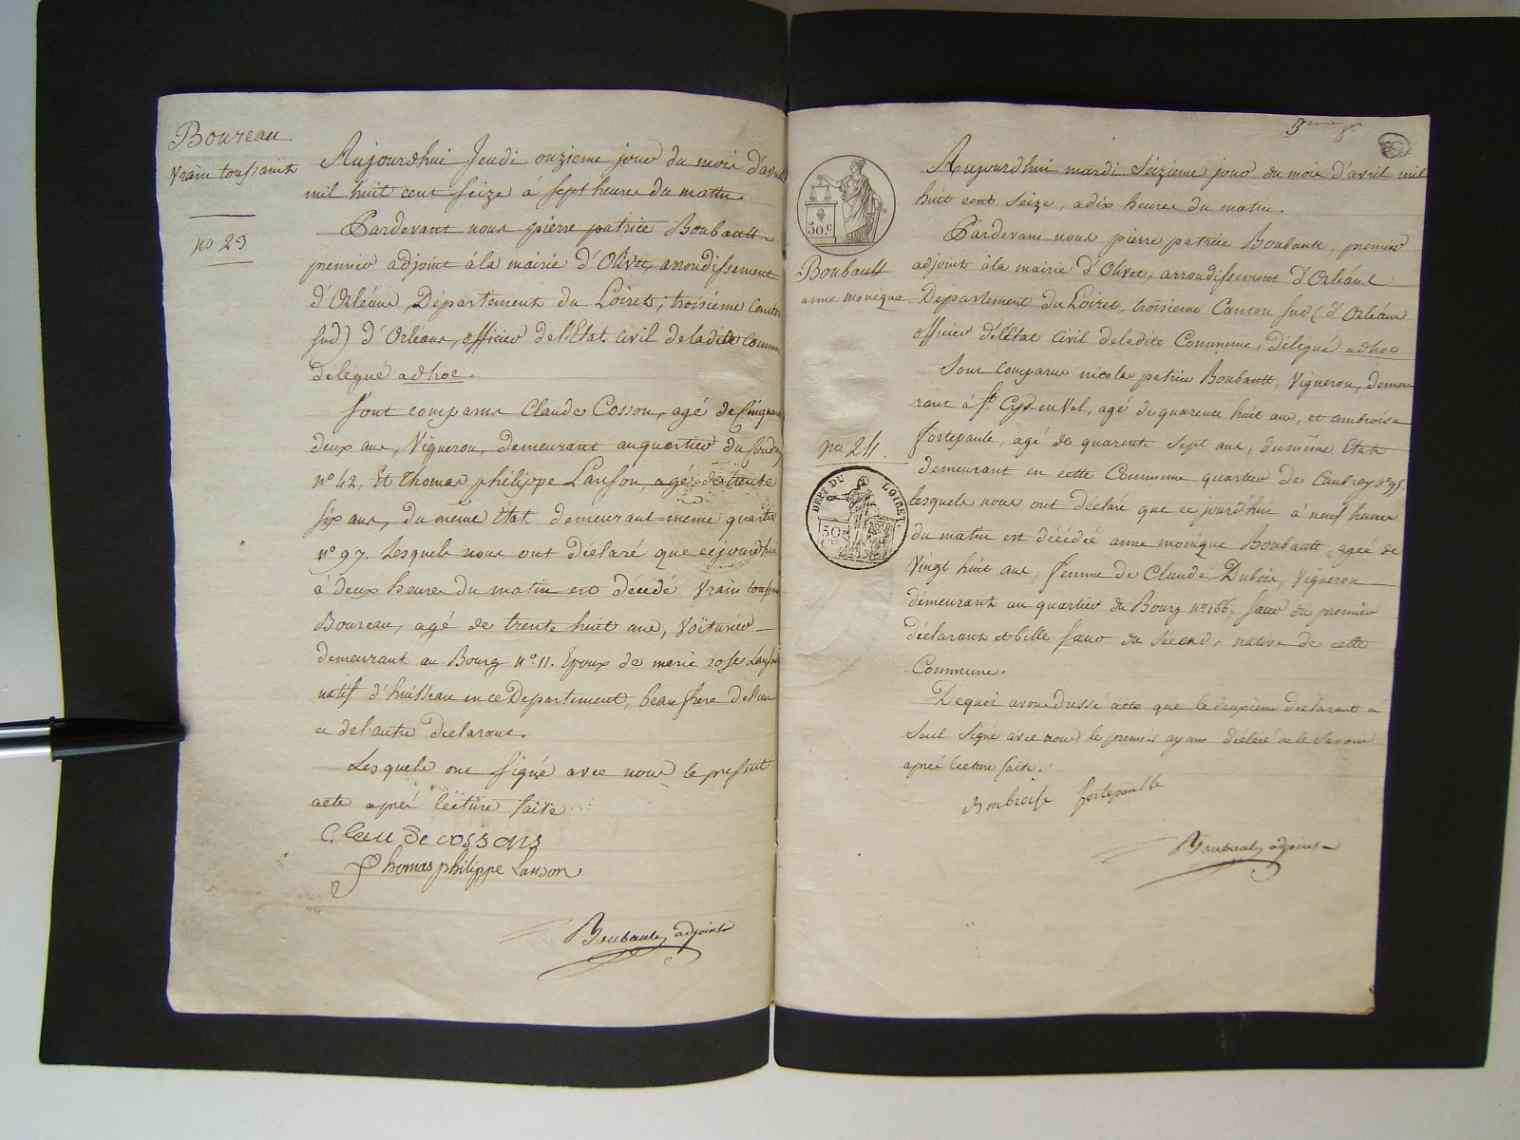 Boureau
Vrain toussaint
no 23
Aujourdhui Jeudi onzieme jour du mois d'avril
mil huit cent seize à sept heures du matin.
Pardevant nous pierre patrice Boubault
premier adjoint à la mairie d'Olivet, arrondissement
d'Orléans, Département du Loiret, troisième Canton
sud) d'Orléans, officier de l'Etat Civil de la dite Commune
délegué adhoc.
Sont comparus Claude Cosson, agé de Cinquante
deux ans, Vigneron, demeurant au quartier du
no 42, Et Thomas philippe Lanson, agé de trente
six ans, du même Etat demeurant même quartier
no 97. Lesquels nous ont déclaré que cejourdhui
à deux heures du matin est décédé Vrain toussaint
Boureau, agé de trente huit ans, Voiturier
demeurant au Bourg no. 11. Epoux de marie rose Lanson
natif d'huisseau en ce Departement, beau frere de l'un
et de l'autre declarant.
Lesquels ont signé avec nous le present
acte après lecture faite
Claude cossons
Thomas philippe Lanson
Boubault adjoint
50 c
Boubault
anne monique
no 24.
DEPT DU LOIRET.
50
Aujourdhui mardi Seizieme jour du mois d'avril mil
huit cent Seize, a dix heures du matin.
Pardevant nous pierre patrice Boubault, premier
adjoint à la mairie d'Olivet, arrondissement d'Orléans
Departement du Loiret, troisieme Canton sud (d'Orléans
officier de l'état Civil de ladite Commune, délegué adhoc
Sont Comparus nicolas patrice Boubault, Vigneron, demeu
rant à St. Cyr en Val, agé de quarente huit ans, et ambroise
fortepaule, agé de quarente Sept ans, du même Etat
demeurant en cette Commune quartier de
lesquels nous ont déclaré que ce jourd'hui à neuf heures
du matin est décédée anne monique Boubault agée de
Vingt huit ans, femme de Claude Dubois, Vigneron
demeurant au quartier du Bourg no 166, soeur du premier
déclarant et belle soeur du Second, native de cette
Commune.
Dequoi avons dressé acte que le deuxieme declarant a
Seul Signé avec nous le premier ayant déclaré ne le Savoir
après lecture faite.
Ambroise fortepaulle
Boubault adjoint